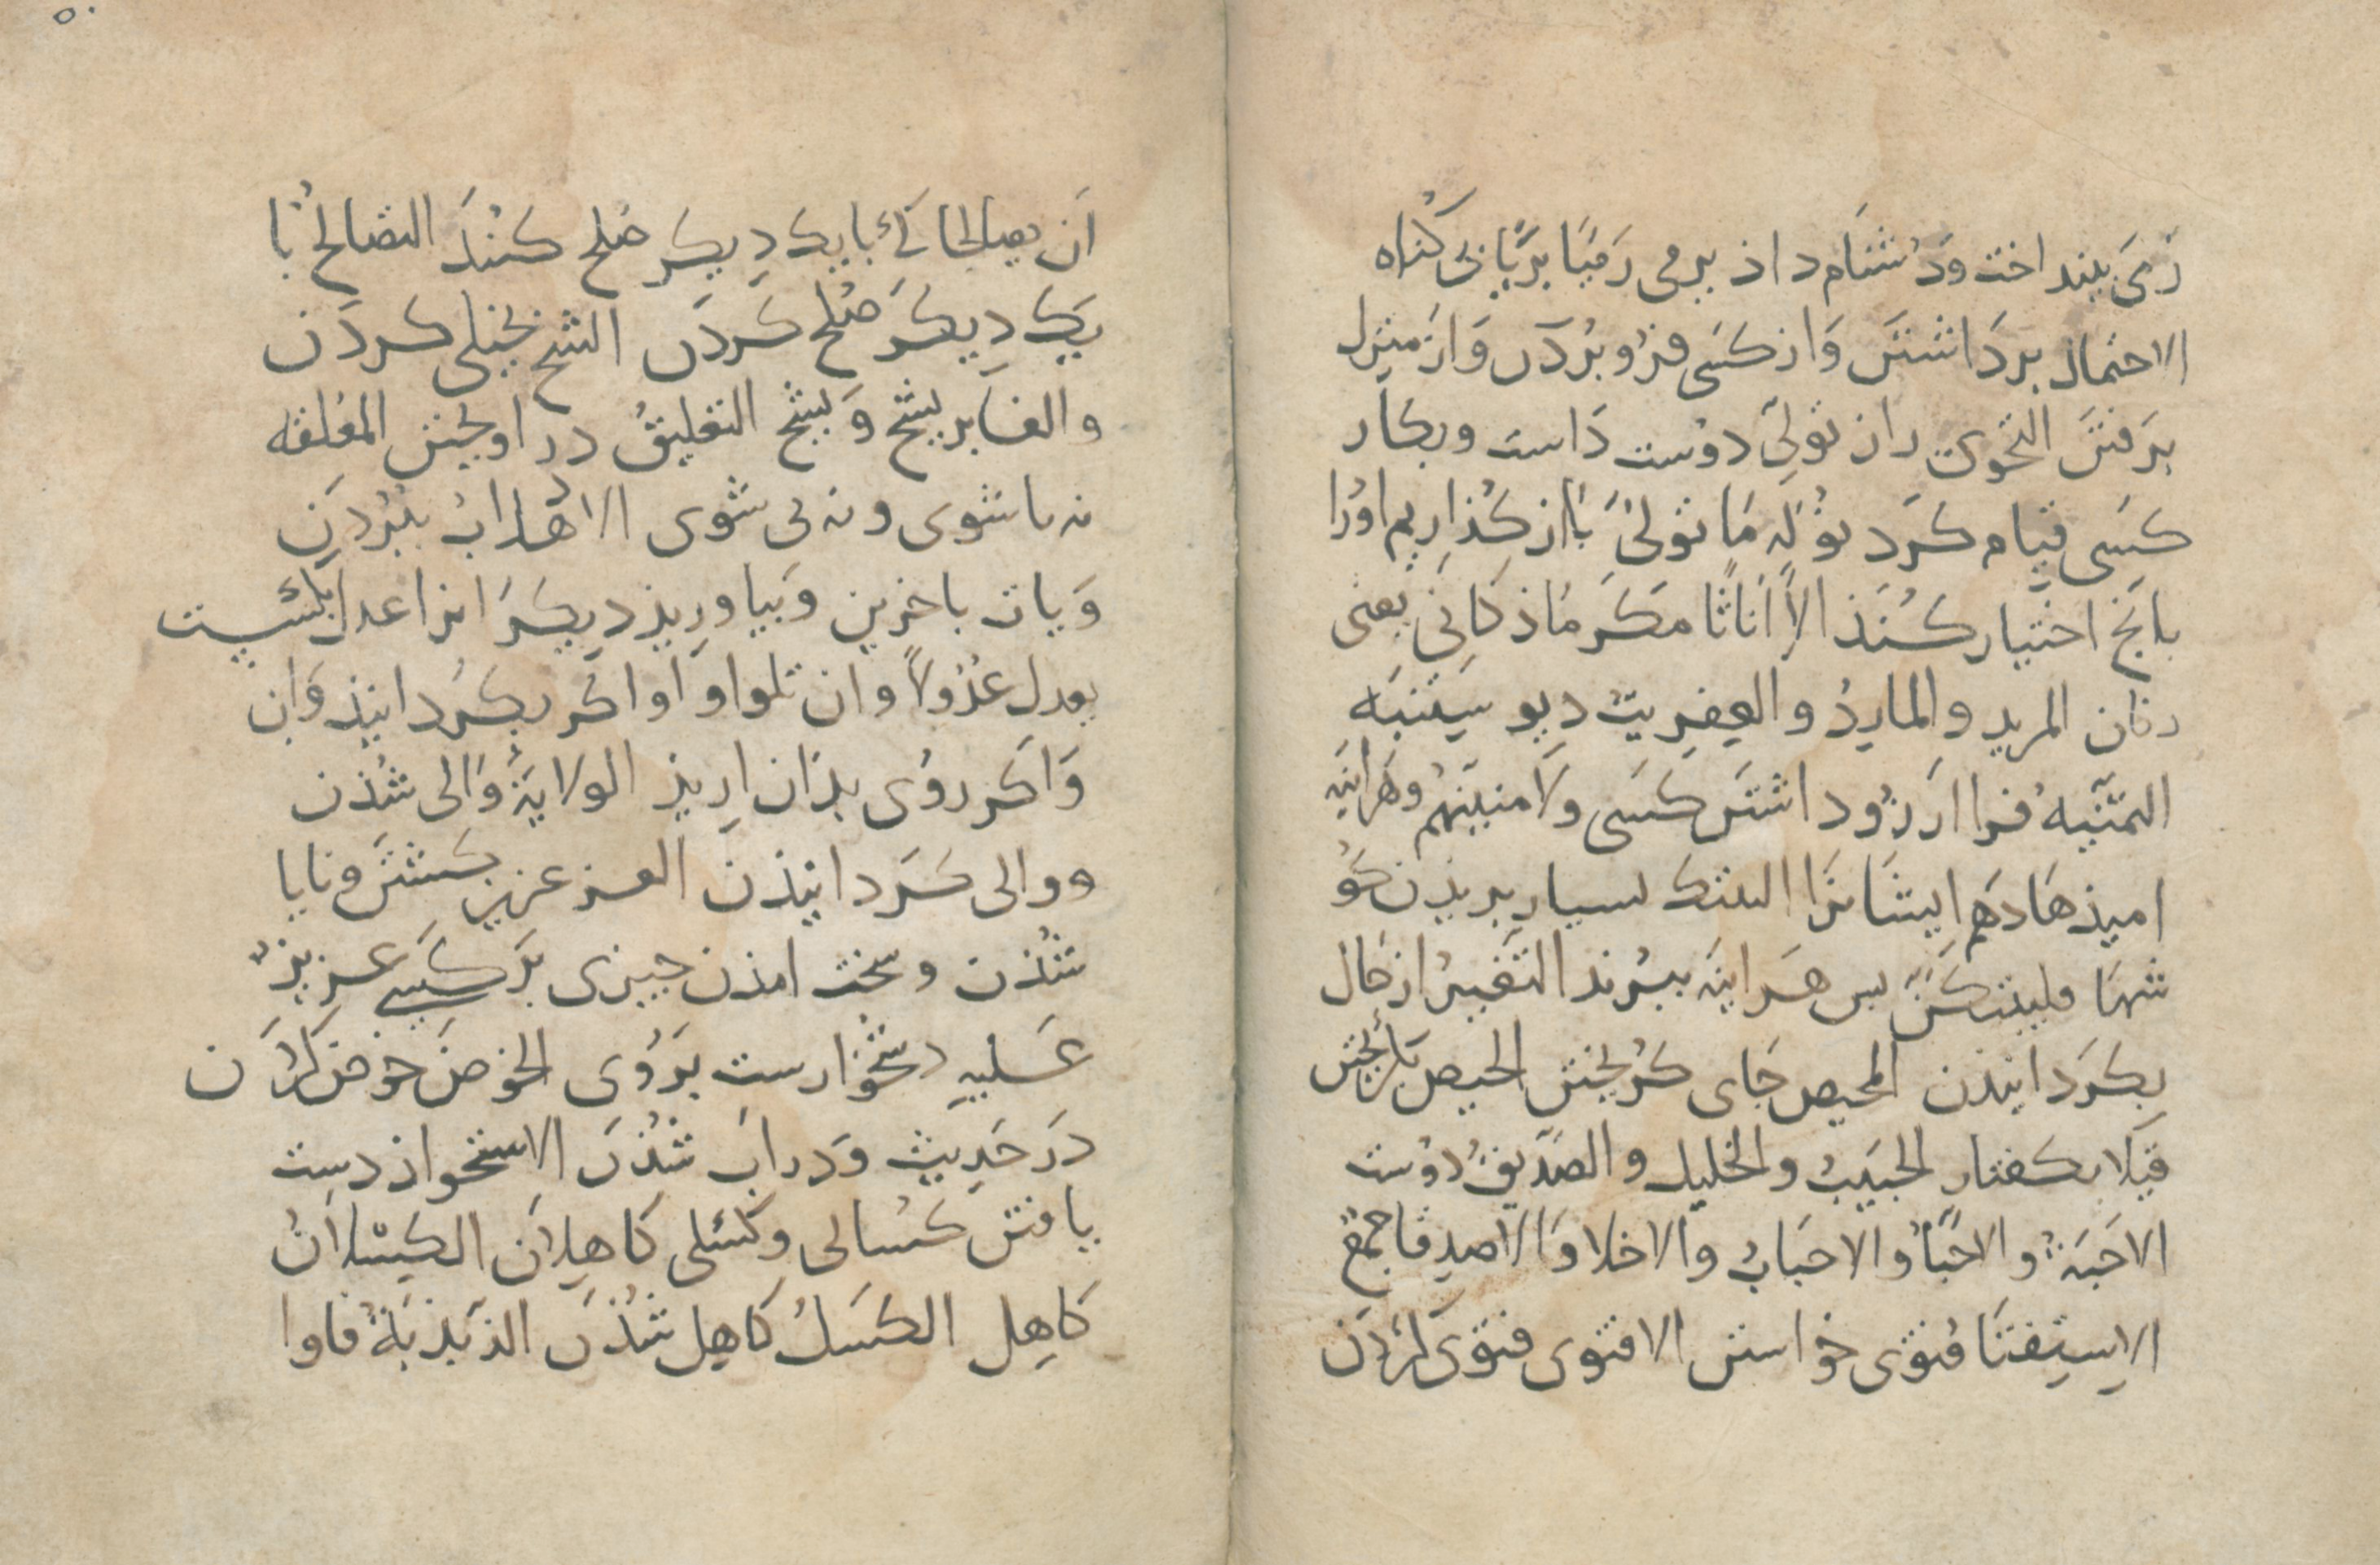 رَمیَ بینداخت وَدُشنَام داذ یرمی رَمیًا بَرِیًّا بی کُناه
الاحتمال برداشتَن وَاز کسَی فرُو بُردَن وَاز منزل
برَفتَن النّحوی راز تَولّیَ دوُست دَاست وبکار
کسَی قیام کرَد نُوَلّهِ مَا تَولّیَ بَازکُذاریم اورُا
بانَج اختیار کُنَذ الّا اَنَاثًا مکَر مَاذکَانِی یعَنی
زنان المرید و الماردُ و العِفرِیت دیو ستِنبَه
التمَنّیهُ فرا ارَزوُ داشتَن کسَی ولَامنیّنهمُ وهَراینَه
امیذهَا دهَم ایشَانرَا البتک بسیار بریذن کَو
شهَا فلیبتکُنَّ بس هَراینَه ببُرند التَغییرُ از حَال
بکرَدانیذن المحیص جَای کُریختن الحیص
قیلًا بکفتار الحَبیَبُ والخلیل و الصَدیقُ دوُست
الاحَبّةُ و الاحبّاُ و الاحبَابُ والاخلا وَالاصدقا جمعُ
الاِستِفتَا فتوَی خوَاستن الافتوی فتوَی کردَن
اَن یصالحَا کی با یک دِیکَر صُلح کنُندَ التصَالحُ با
یَک دِیکَرَ صُلح کَردَن الشح بخیلی کردَن
والغابر یشح وَیشِحّ التعَلیقُ دراویختن المعُلقه
نه با شوی و نه بی شوی الاذهابُ ببُردَن
وَیات باخرین وَبیاورِیذ دِیکَرَانرا عدل
یعدل عدُوُلًا وان تلوا او اکَر بکرَدانیذ وَان
وَاکَر روُی بذان ارِیذ الولایَةُ وَالی شدُن
و والی کَردانیذن العز عزیز کَشتَن و نایا
شُذن وسخت امذن جیزی بَر کسَی عزیزٌ
عَلیهِ دشخوَارست برَوُی الخوَضَ خوَض کَردَن
درَ حَدیِث وَدراب شُذن الاستحواذ دست
یافتن کسُالی و کسَلی کَاهِلان الکسِلانُ
کَاهِل الکسَلُ کَاهِل شذُن الذَبذبَةُ فاوا